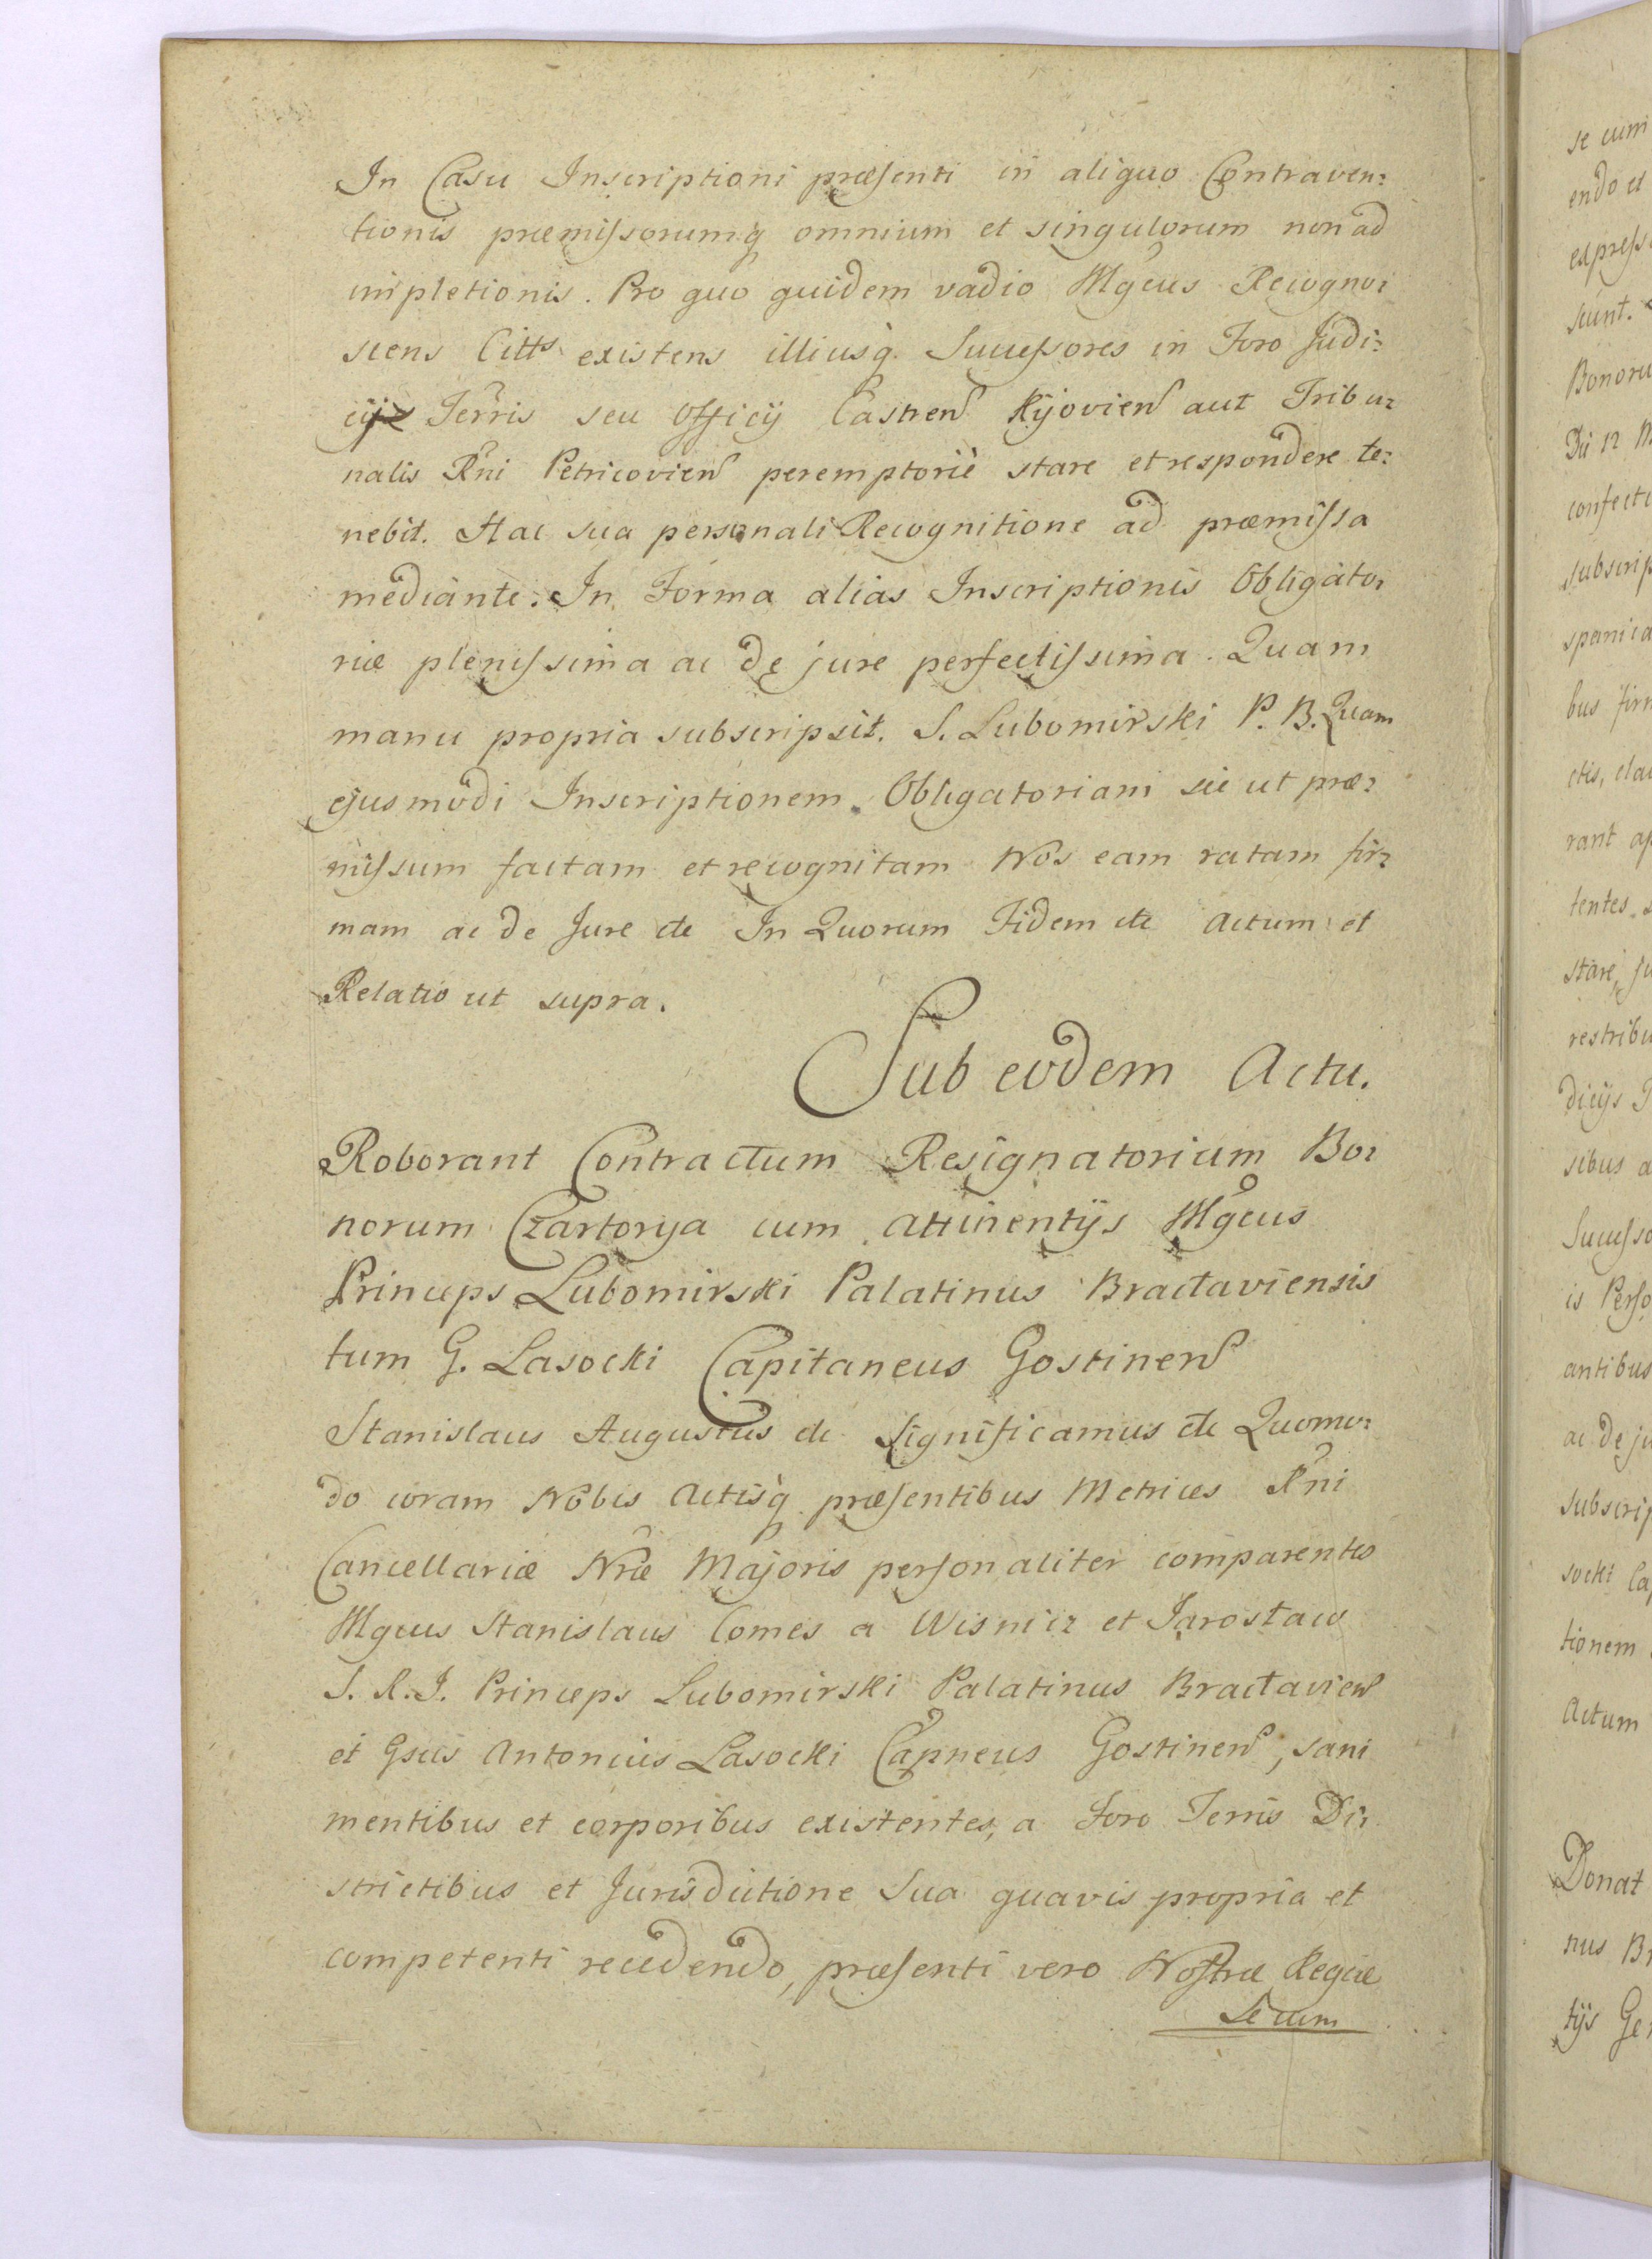 In Casu Inscriptioni præsenti in aliquo Contraven:
tionis præmissorumq omnium et singulorum non ad
impletionis. Pro quo quidem vadio Mgcus Recogno:
scens Citts existens illiusq. Successores in Foro Judi:
cij Terris seu Officij Castren Kijovien aut Tribu:
nalis Rni Petricovien peremptoriè stare et respondere te:
nebit. Hac sua personali Recognitione ad præmissa
mediante. In Forma alias Inscriptionis Obligato:
riæ plenissima ac de jure perfectissima. Quam
manu propria subscripsit. S. Lubomirski P. B. Quam
ejusmodi Inscriptionem Obligatoriam sic ut præ:
missum factam et recognitam Nos eam ratam fir:
mam ac de Jure etc In Quorum Fidem etc Actum et
Relatio ut supra.
Sub eodem Actu.
Roborant Contractum Resignatorium Bo:
norum Czartorya cum attinentijs Mgcus
Princeps Lubomirski Palatinus Bractaviensis
tum G. Lasocki Capitaneus Gostinen
Stanislaus Augustus etc Significamus etc Quomo:
do coram Nobis Actisq præsentibus Metrices Rni
Cancellariæ Nræ Majoris personaliter comparentes
Mgcus Stanislaus Comes a Wisnicz et Jarosław
S. R. I. Princeps Lubomirski Palatinus Bractavien
et Gsus Antonius Lasocki Capneus Gostinen, sani
mentibus et corporibus existentes, a Foro Terris Di:
strictibus et Jurisdictione Sua quavis propria et
competenti recedendo, præsenti vero Nostræ Regiæ
Se cum
se cum
endo et
express
sunt.
Bonoru
confect
subscrip
bus firm
ctis, cla
rant ap
tentes
stare, Ju
restribu
dicijs
sibus a
Successo
is Perso
antibus
ac de ju
subscrip
socki Ca
tionem
Actum
Donat
nus Br
tijs Ge